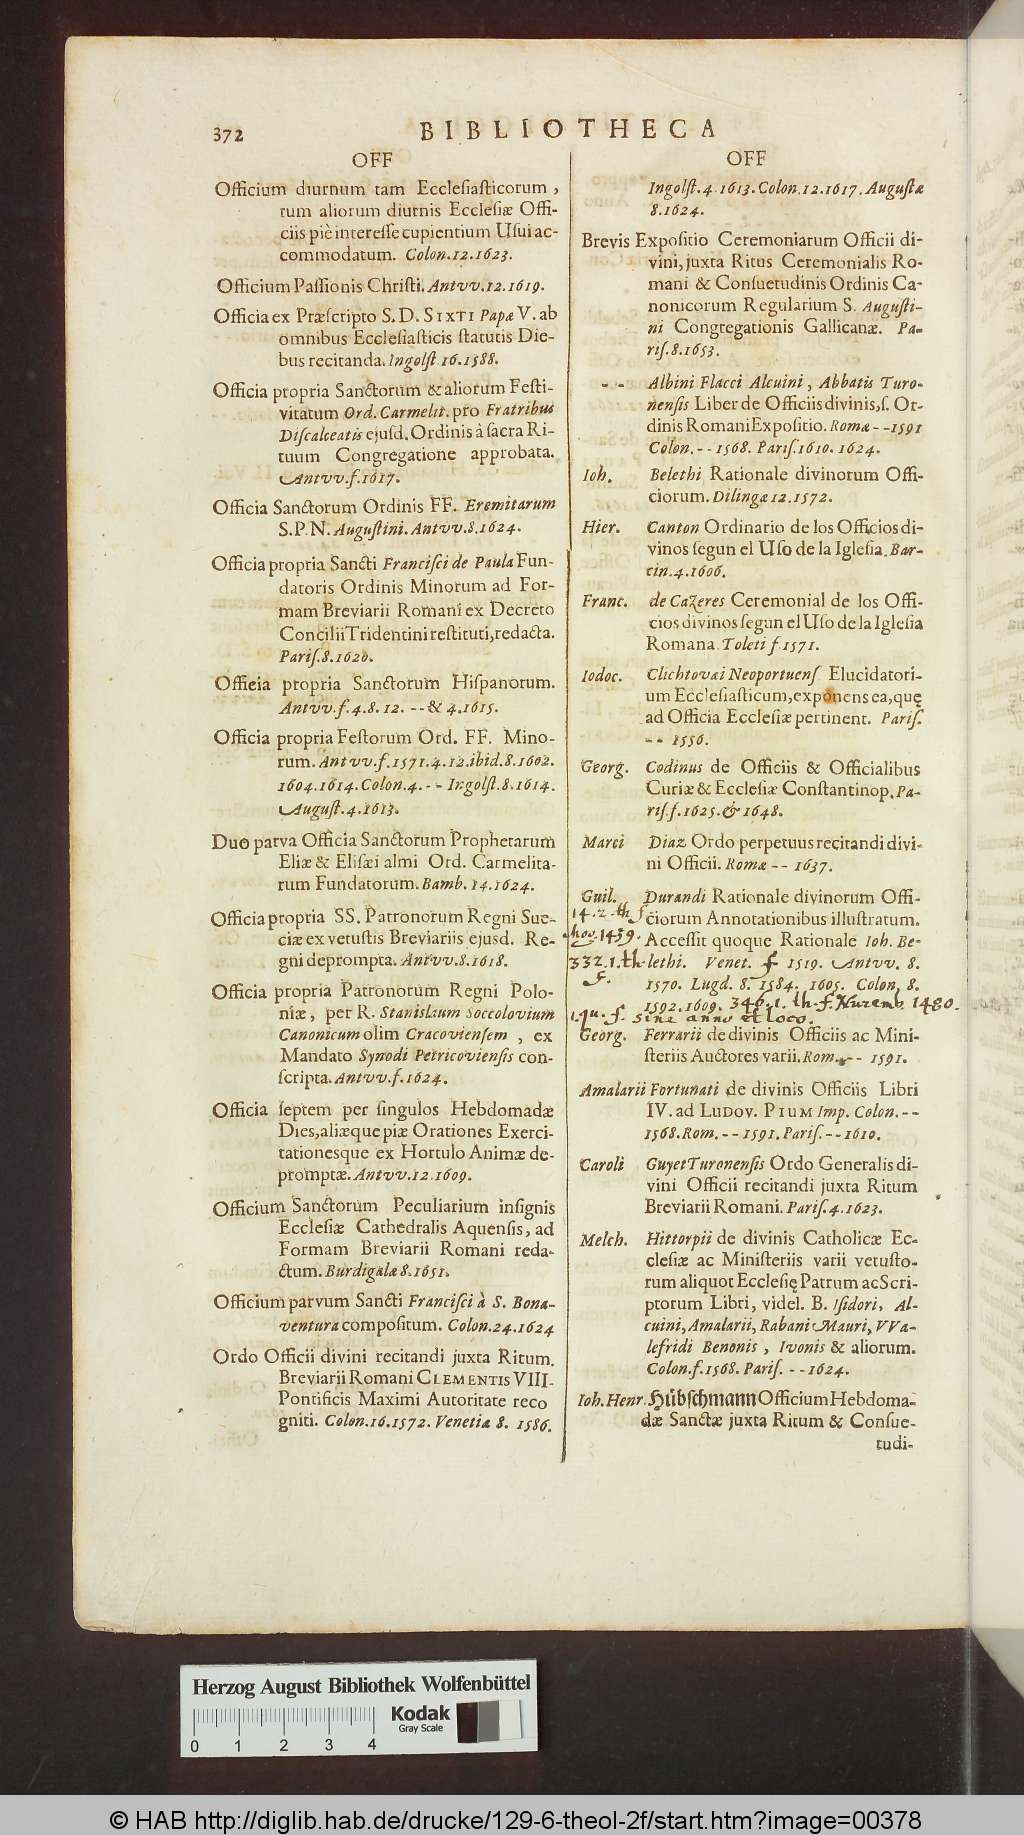 372 BIBLIOTHECA
OFF
Officium diurnum tam Ecclesiasticorum,
tum aliorum diurnis Ecclesiæ Offi-
ciis piè interesse cupientium Usui ac-
commodatum. Colon. 12. 1623.
Officium Passionis Christi. Antvv. 12. 1619.
Officia ex Præscripto S. D. SIXTI Papæ V. ab
omnibus Ecclesiasticis statutis Die-
bus recitanda. Ingolst. 16. 1588.
Officia propria Sanctorum & aliorum Festi-
vitatum Ord. Carmelit. pro Fratribus
Discalceatis ejusd. Ordinis à sacra Ri-
tuum Congregatione approbata.
Antvv. f. 1617.
Officia Sanctorum Ordinis FF. Eremitarum
S. P. N. Augustini. Antvv. 8. 1624.
Officia propria Sancti Francisci de Paula Fun-
datoris Ordinis Minorum ad For-
mam Breviarii Romani ex Decreto
Concilii Tridentini restituti, redacta.
Paris. 8. 1620.
Officia propria Sanctorum Hispanorum.
Antvv. f. 4. 8. 12. -- & 4. 1615.
Officia propria Festorum Ord. FF. Mino-
rum. Antvv. f. 1571. 4. 12. ibid. 8. 1602.
1604. 1614. Colon. 4. -- Ingolst. 8. 1614.
August. 4. 1613.
Duo parva Officia Sanctorum Prophetarum
Eliæ & Elisæi almi Ord. Carmelita-
rum Fundatorum. Bamb. 14. 1624.
Officia propria SS. Patronorum Regni Sue-
ciæ ex vetustis Breviariis ejusd. Re-
gni deprompta. Antvv. 8. 1618.
Officia propria Patronorum Regni Polo-
niæ, per R. Stanislaum Soccolovium
Canonicum olim Cracoviensem, ex
Mandato Synodi Petricoviensis con-
scripta. Antvv. f. 1624.
Officia septem per singulos Hebdomadæ
Dies, aliæque piæ Orationes Exerci-
tationesque ex Hortulo Animæ de-
promptæ. Antvv. 12. 1609.
Officium Sanctorum Peculiarium insignis
Ecclesiæ Cathedralis Aquensis, ad
Formam Breviarii Romani reda-
ctum. Burdigalæ 8. 1651.
Officium parvum Sancti Francisci à S. Bona-
ventura compositum. Colon. 24. 1624
Ordo Officii divini recitandi juxta Ritum.
Breviarii Romani CLEMENTIS VIII.
Pontificis Maximi Autoritate reco
gniti. Colon. 16. 1572. Venetiæ 8. 1586.
OFF
Ingolst. 4. 1613. Colon. 12. 1617. Augustæ
8. 1624.
Brevis Expositio Ceremoniarum Officii di-
vini, juxta Ritus Ceremonialis Ro-
mani & Consuetudinis Ordinis Ca-
nonicorum Regularium S. Augusti-
ni Congregationis Gallicanæ. Pa-
ris. 8. 1653.
-- Albini Flacci Alcuini, Abbatis Turo-
nensis Liber de Officiis divinis, s. Or-
dinis Romani Expositio. Romæ -- 1591
Colon. -- 1568. Paris. 1610. 1624.
Ioh. Belethi Rationale divinorum Offi-
ciorum. Dilingæ 12. 1572.
Hier. Canton Ordinario de los Officios di-
vinos segun el Uso de la Iglesia. Bar-
cin. 4. 1606.
Franc. de Cazeres Ceremonial de los Offi-
cios divinos segun el Uso de la Iglesia
Romana. Toleti f 1571.
Iodoc. Clichtovæi Neoportuens Elucidatori-
um Ecclesiasticum, exponens ea, quę
ad Officia Ecclesiæ pertinent. Paris.
-- 1556.
Georg. Codinus de Officiis & Officialibus
Curiæ & Ecclesiæ Constantinop. Pa-
ris. f. 1625. & 1648.
Marci Diaz Ordo perpetuus recitandi divi-
ni Officii. Romæ -- 1637.
Guil. Durandi Rationale divinorum Offi-
14. 2. th. f ciorum Annotationibus illustratum.
1459. Accessit quoque Rationale Ioh. Be-
332. 1. th lethi. Venet. f 1519. Antvv. 8.
f. 1570. Lugd. 8. 1584. 1605. Colon, 8.
1592. 1609. 346. 1. th. f. Nuremb. 1480.
1. qu. f. sine anno et loco.
Georg. Ferrarii de divinis Officiis ac Mini-
steriis Auctores varii. Rom. -- 1591.
Amalarii Fortunati de divinis Officiis Libri
IV. ad LUDOV. PIUM Imp. Colon. --
1568. Rom. -- 1591. Paris. -- 1610.
Caroli Guyet Turonensis Ordo Generalis di-
vini Officii recitandi juxta Ritum
Breviarii Romani. Paris. 4. 1623.
Melch. Hittorpii de divinis Catholicæ Ec-
clesiæ ac Ministeriis varii vetusto-
rum aliquot Ecclesię Patrum ac Scri-
ptorum Libri, videl. B. Isidori, Al-
cuini, Amalarii, Rabani Mauri, VVa-
lefridi Benonis, Ivonis & aliorum.
Colon. f. 1568. Paris. -- 1624.
Ioh. Henr. Hübschmann Officium Hebdoma-
dæ Sanctæ juxta Ritum & Consue-
tudi-
Herzog August Bibliothek Wolfenbüttel
Kodak
Gray Scale
0 1 2 3 4
© HAB http://diglib.hab.de/drucke/129-6-theol-2f/start.htm?image=00378